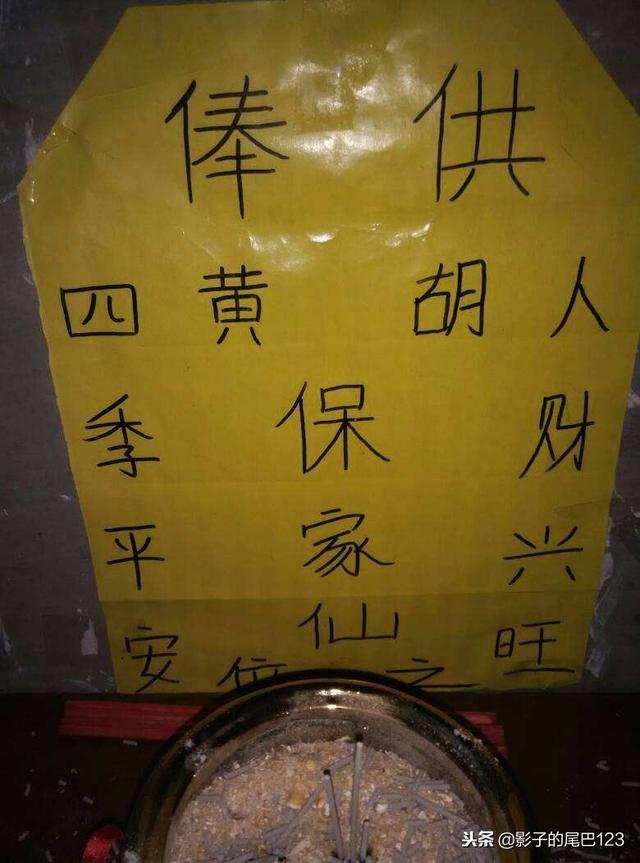 供俸
人财兴旺
胡黄
保家仙
之位
四季平安
头条 @影子的尾巴123